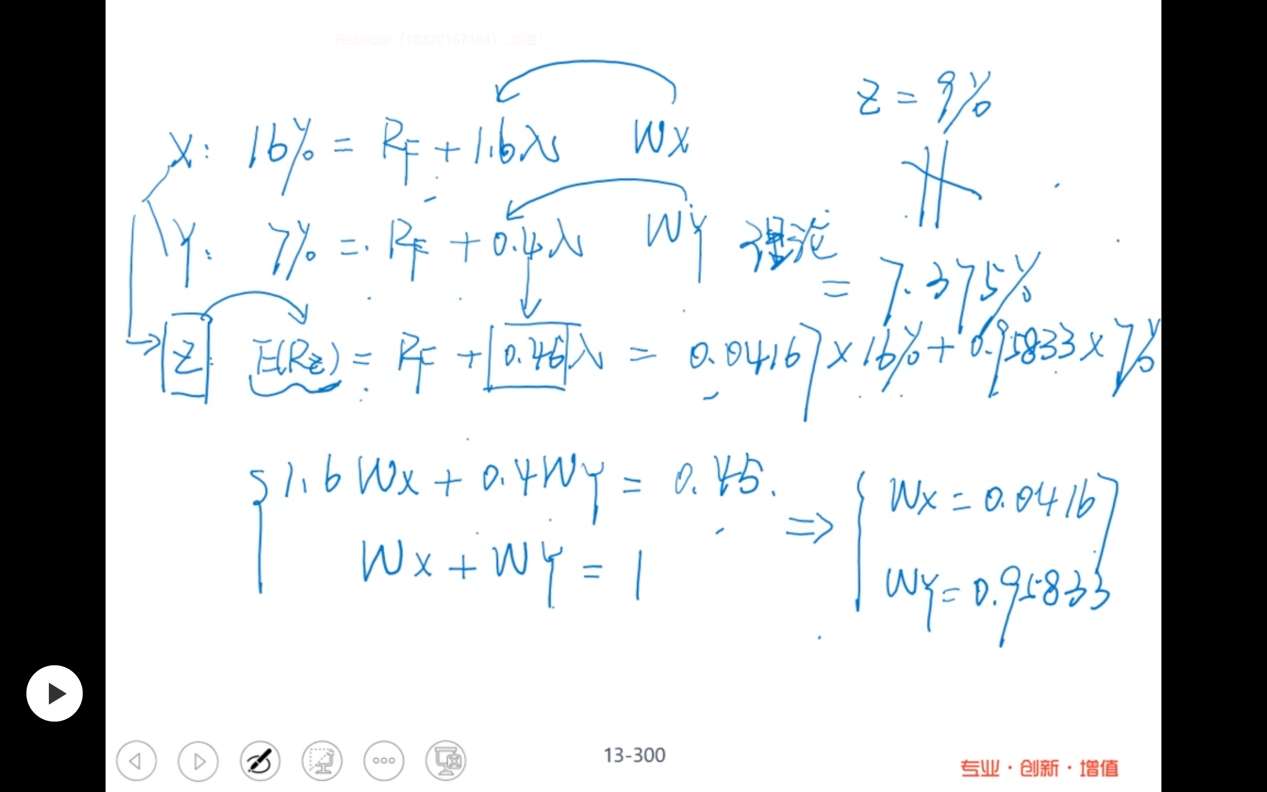 Z = 9%
X: 16% = RF + 1.6λ WX
Y: 7% = RF + 0.4λ WY 理论
= 7.375%
Z: E(RZ) = RF + 0.46λ = 0.04167 × 16% + 0.95833 × 7%
1.6WX + 0.4WY = 0.45.
WX + WY = 1
⇒ { WX = 0.04167
WY = 0.95833
13-300
专业·创新·增值